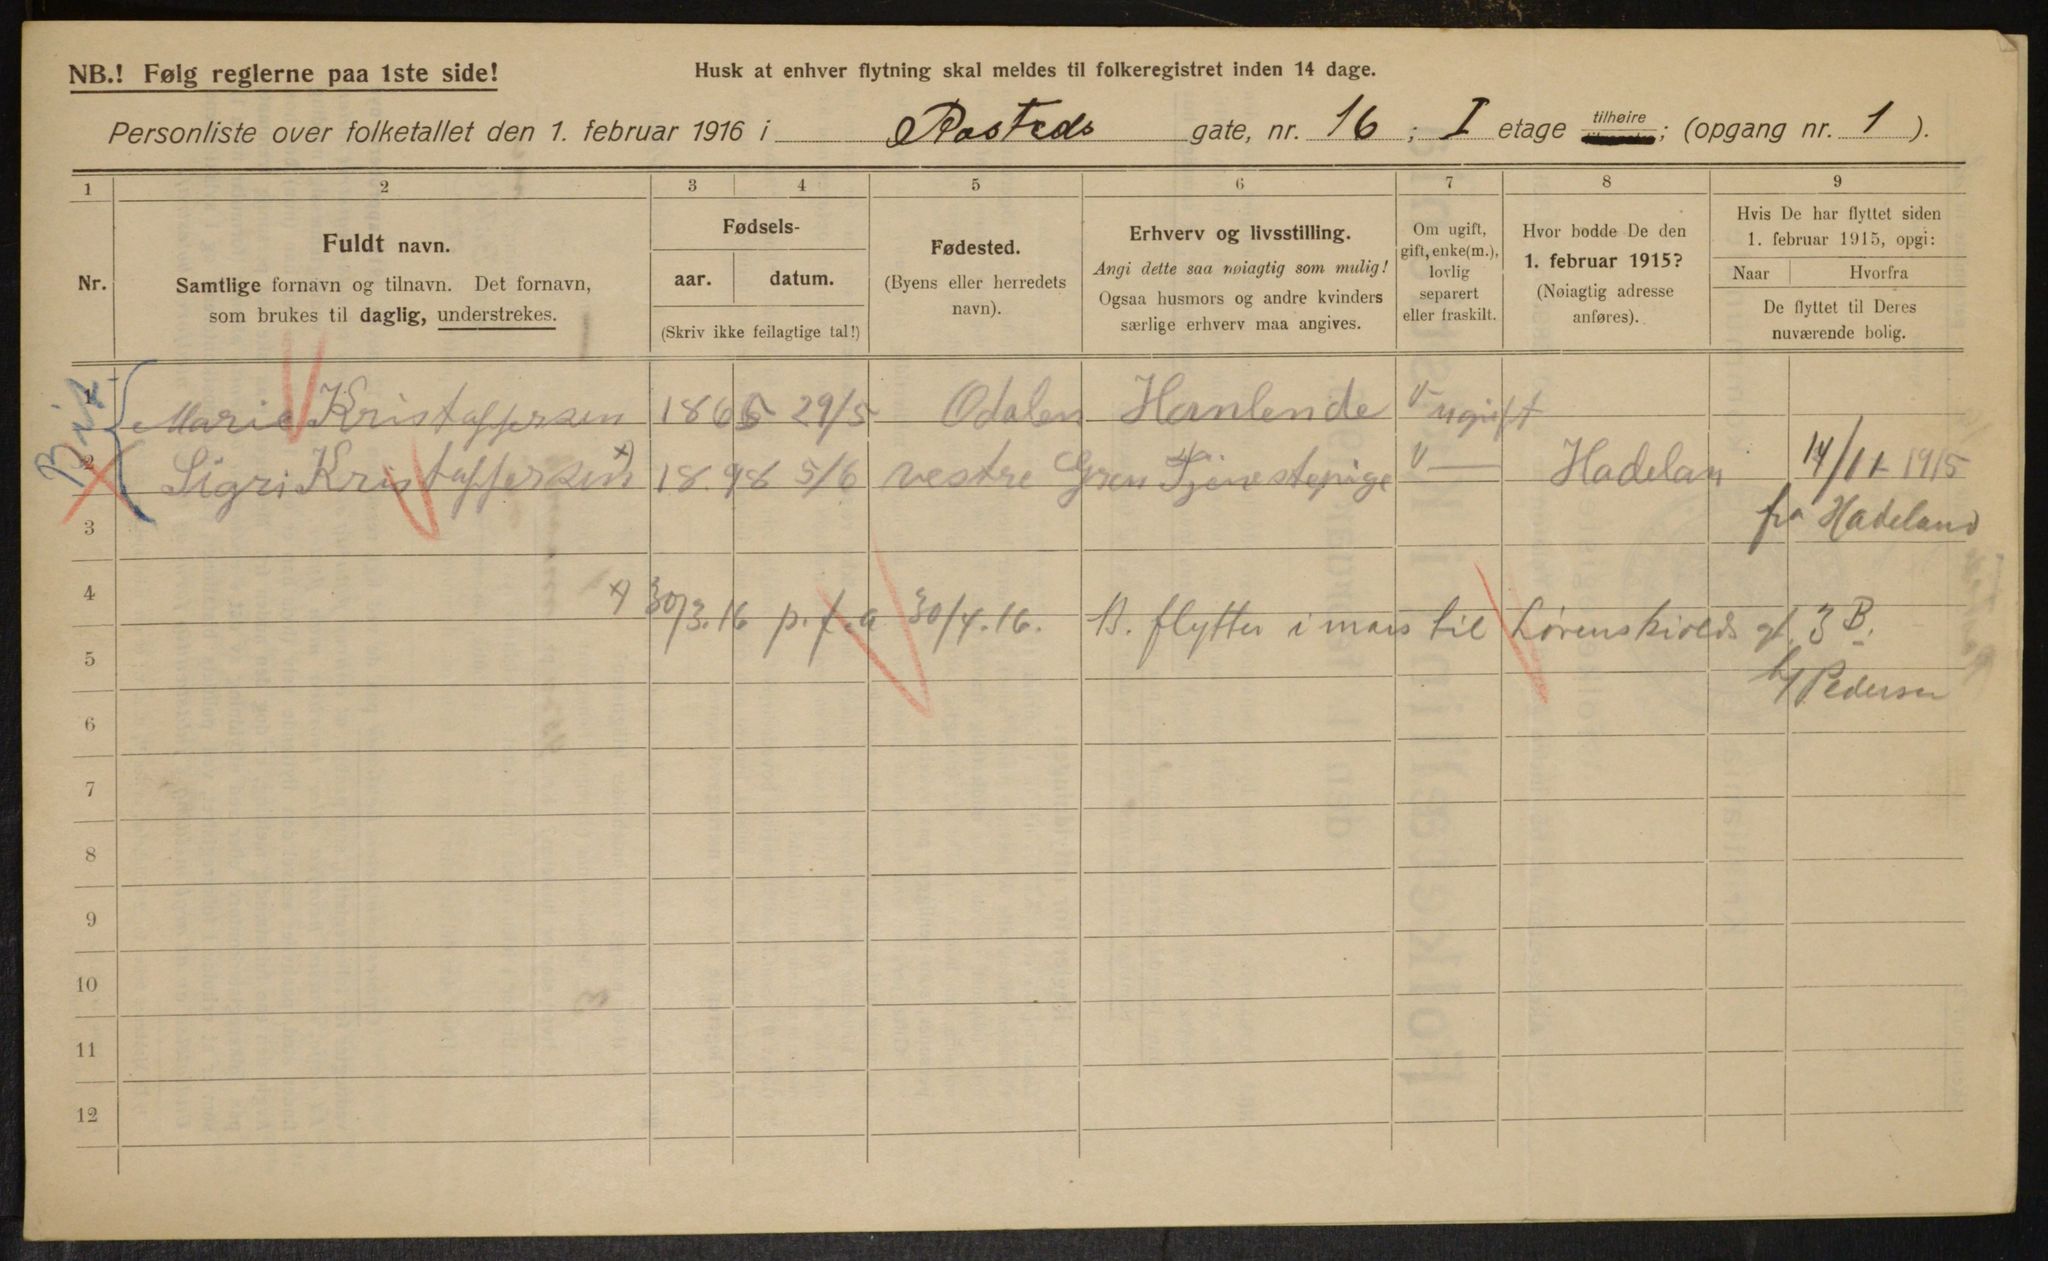 NB.! Følg reglerne paa 1ste side!
Husk at enhver flytning skal meldes til folkeregistret inden 14 dage.
Personliste over folketallet den 1. februar 1916 i Rosteds gate, nr. 16 ; I etage tilhøire ; (opgang nr. 1 ).
1 2 3 4 5 6 7 8 9
Nr.
Fuldt navn.
Samtlige fornavn og tilnavn. Det fornavn,
som brukes til daglig, understrekes.
Fødsels-
aar. datum.
(Skriv ikke feilagtige tal!)
Fødested.
(Byens eller herredets
navn).
Erhverv og livsstilling.
Angi dette saa nøiagtig som mulig!
Ogsaa husmors og andre kvinders
særlige erhverv maa angives.
Om ugift,
gift, enke(m.),
lovlig
separert
eller fraskilt.
Hvor bodde De den
1. februar 1915?
(Nøiagtig adresse
anføres).
Hvis De har flyttet siden
1. februar 1915, opgi:
Naar Hvorfra
De flyttet til Deres
nuværende bolig.
1 Marie Kristaffersen 1865 29/5 Odalen Hanlende " ugift
2 Sigri Kristaffersen x) 1898 5/6 vestre Gran Tjenestepige " — Hadelan 14/11 1915
3 fra Hadeland
4 x) 30/3.16 p.f.a 30/4.16. B. flytter i mars til Lørenskiolds gt. 3 B.
5 h/ Pedersen
6
7
8
9
10
11
12